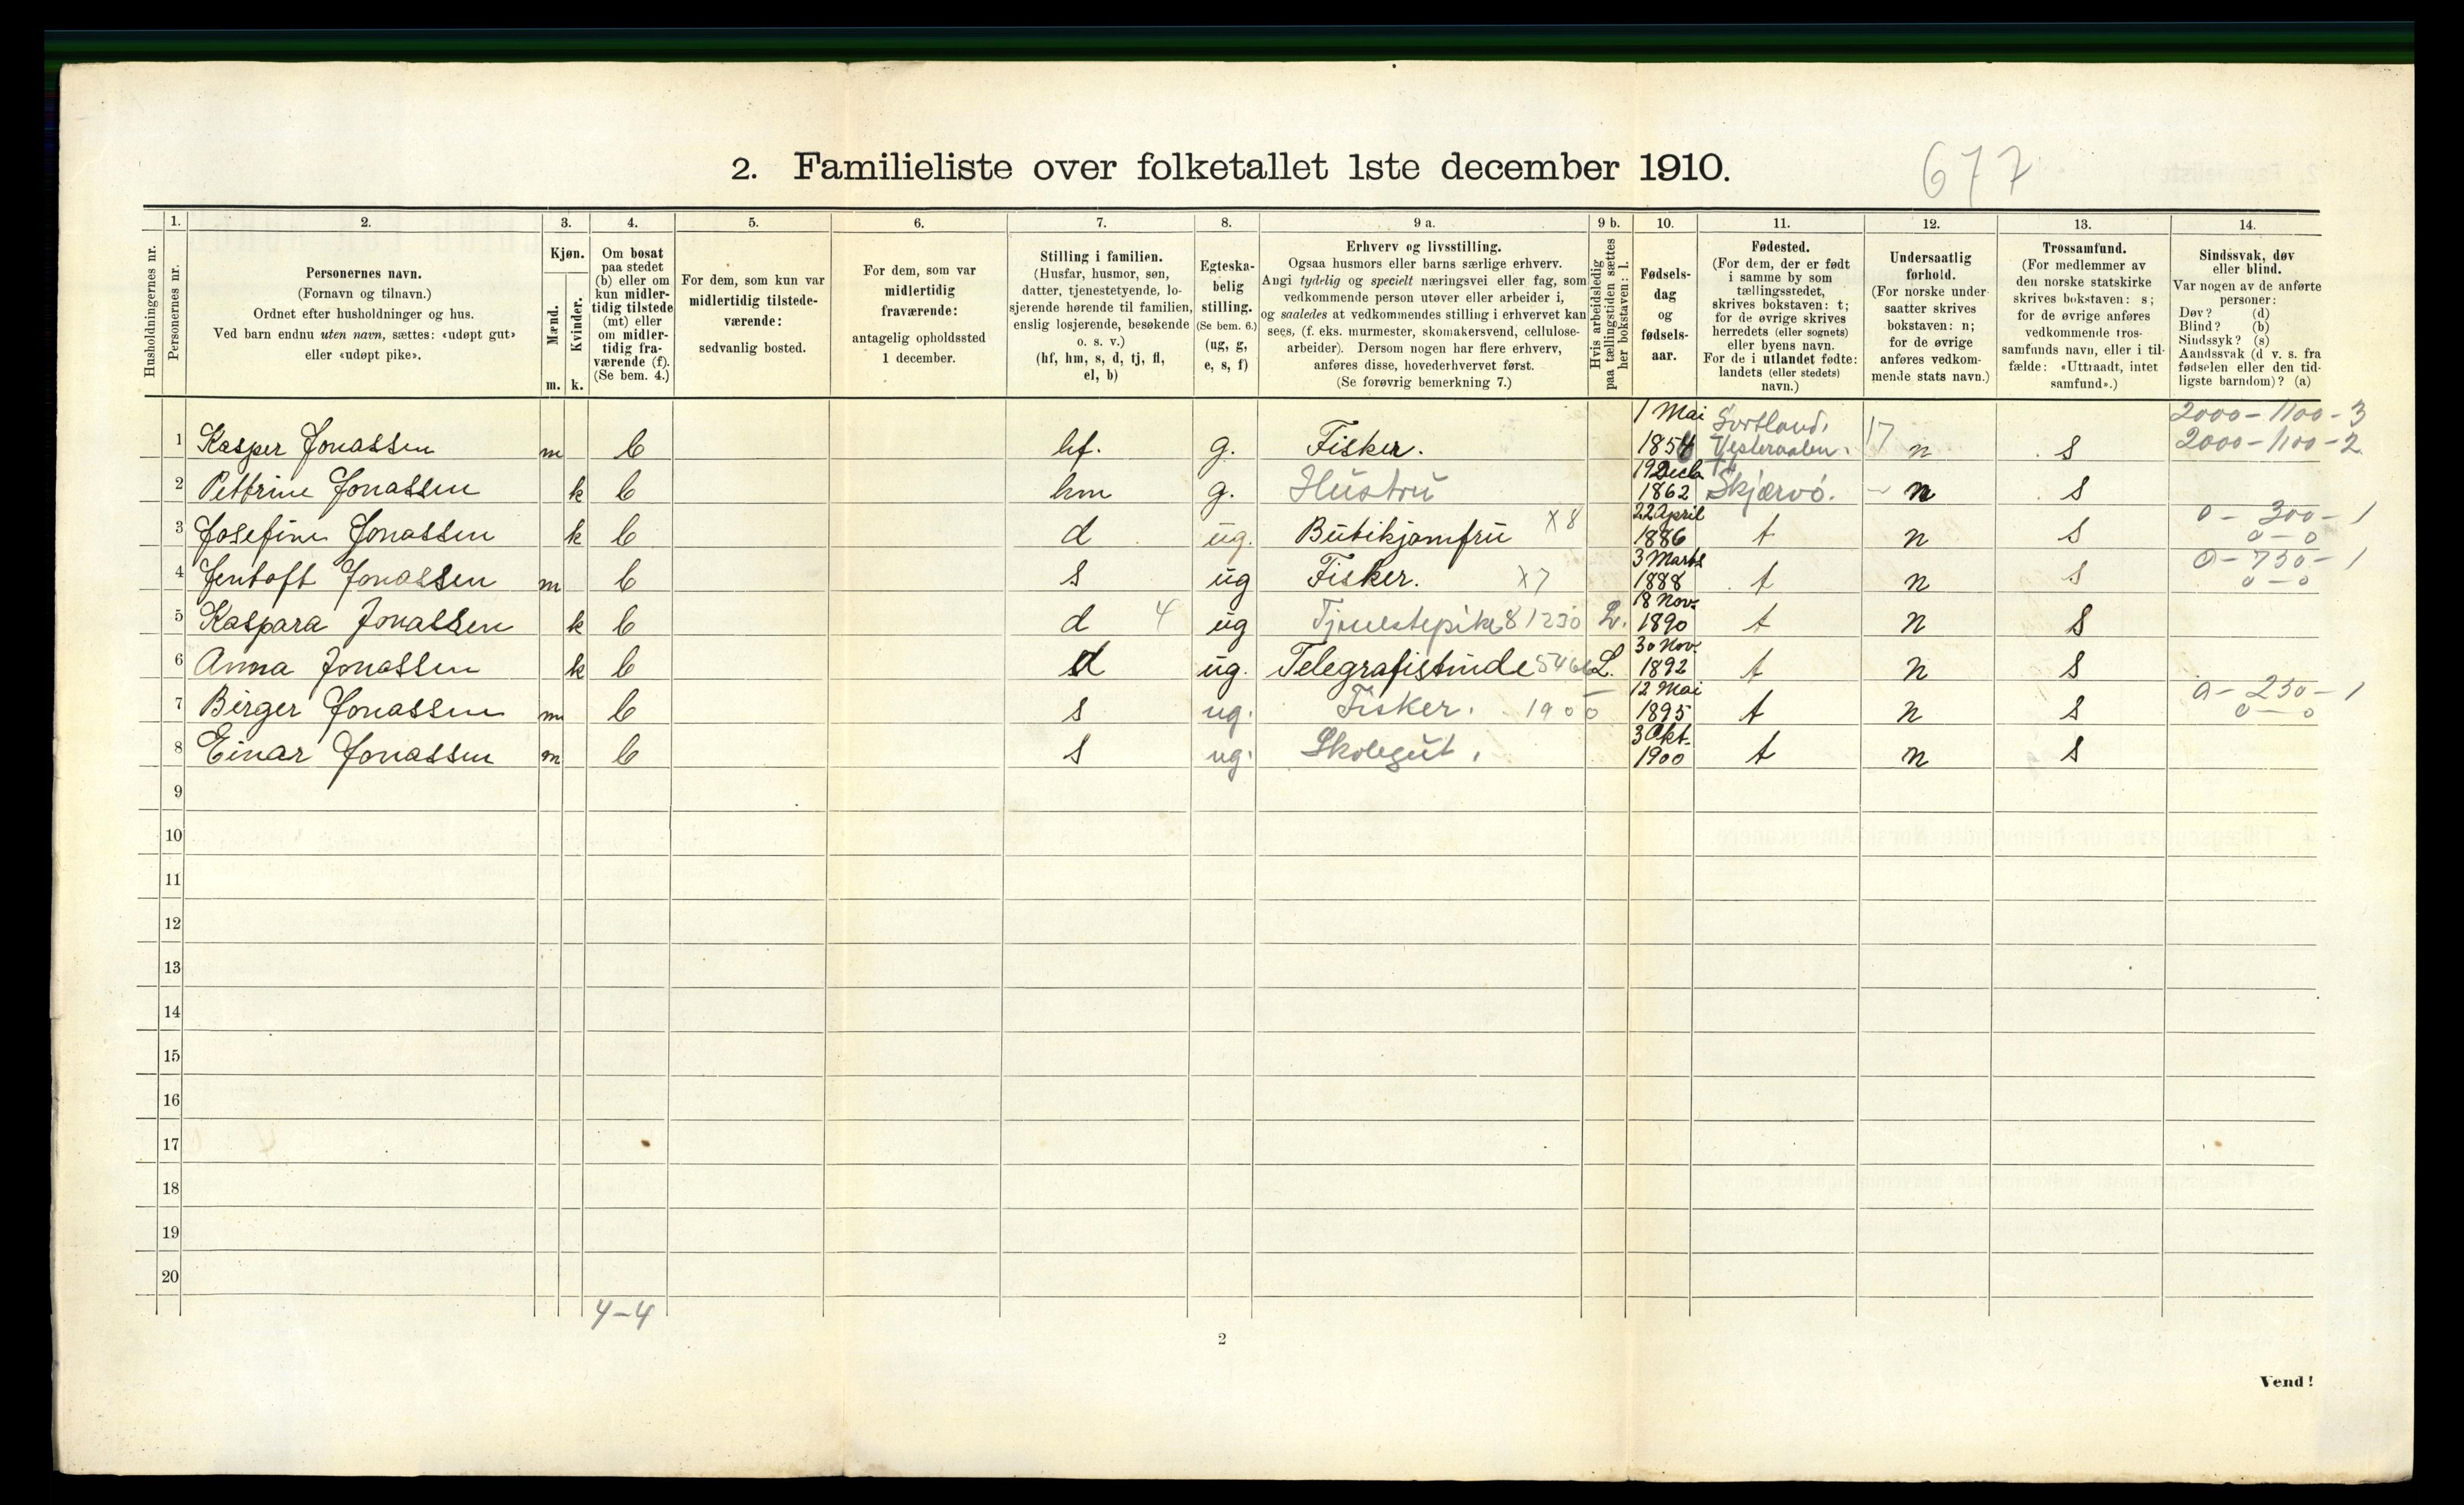 2. Familieliste over folketallet 1ste december 1910.
677
1. 2. 3. 4. 5. 6. 7. 8. 9 a. 9 b. 10. 11. 12. 13. 14.
Husholdningernes nr.
Personernes nr.
Personernes navn.
(Fornavn og tilnavn.)
Ordnet efter husholdninger og hus.
Ved barn endnu uten navn, sættes: «udøpt gut»
eller «udøpt pike».
Kjøn.
Mænd.
Kvinder.
m. k.
Om bosat
paa stedet
(b) eller om
kun midler-
tidig tilstede
(mt) eller
om midler-
tidig fra-
værende (f).
(Se bem. 4.)
For dem, som kun var
midlertidig tilstede-
værende:
sedvanlig bosted.
For dem, som var
midlertidig
fraværende:
antagelig opholdssted
1 december.
Stilling i familien.
(Husfar, husmor, søn,
datter, tjenestetyende, lo-
sjerende hørende til familien,
enslig losjerende, besøkende
o. s. v.)
(hf, hm, s, d, tj, fl,
el, b)
Egteska-
belig
stilling.
(Se bem. 6.)
(ug, g,
e, s, f)
Erhverv og livsstilling.
Ogsaa husmors eller barns særlige erhverv.
Angi tydelig og specielt næringsvei eller fag, som
vedkommende person utøver eller arbeider i,
og saaledes at vedkommendes stilling i erhvervet kan
sees, (f. eks. murmester, skomakersvend, cellulose-
arbeider). Dersom nogen har flere erhverv,
anføres disse, hovederhvervet først.
(Se forøvrig bemerkning 7.)
Hvis arbeidsledig
paa tællingstiden sættes
her bokstaven: l.
Fødsels-
dag
og
fødsels-
aar.
Fødested.
(For dem, der er født
i samme by som
tællingsstedet,
skrives bokstaven: t;
for de øvrige skrives
herredets (eller sognets)
eller byens navn.
For de i utlandet fødte:
landets (eller stedets)
navn.)
Undersaatlig
forhold.
(For norske under-
saatter skrives
bokstaven: n;
for de øvrige
anføres vedkom-
mende stats navn.)
Trossamfund.
(For medlemmer av
den norske statskirke
skrives bokstaven: s;
for de øvrige anføres
vedkommende tros-
samfunds navn, eller i til-
fælde: «Uttraadt, intet
samfund».)
Sindssvak, døv
eller blind.
Var nogen av de anførte
personer:
Døv? (d)
Blind? (b)
Sindssyk? (s)
Aandssvak (d. v. s. fra
fødselen eller den tid-
ligste barndom)? (a)
1 Kasper Jonassen m b hf. g. Fisker. 1 Mai 1854 Sortland, Vesteraalen. 17 n s 2000-1100-3 2000-1100-2
2 Pettrine Jonassen k b hm g. Hustru 19 Decb 1862 Skjærvö. n s
3 Josefine Jonassen k b d ug. Butikjomfru X8 22 April 1886 t n s 0-300-1 0-0
4 Jentoft Jonassen m b s ug Fisker. X7 3 Marts 1888 t n s 0-750-1 0-0
5 Kaspara Jonassen k b d 4 ug Tjenestepike 81230 L. 18 Nov. 1890 t n s
6 Anna Jonassen k b d ug. Telegrafistinde L. 30 Nov. 1892 t n s
7 Birger Jonassen m b s ug. Fisker. 1900 12 Mai 1895 t n s 0-250-1 0-0
8 Einar Jonassen m b s ug. Skolegut. 3 Okt. 1900 t n s
9
10
11
12
13
14
15
16
17
18
19
20
4-4
2
Vend!